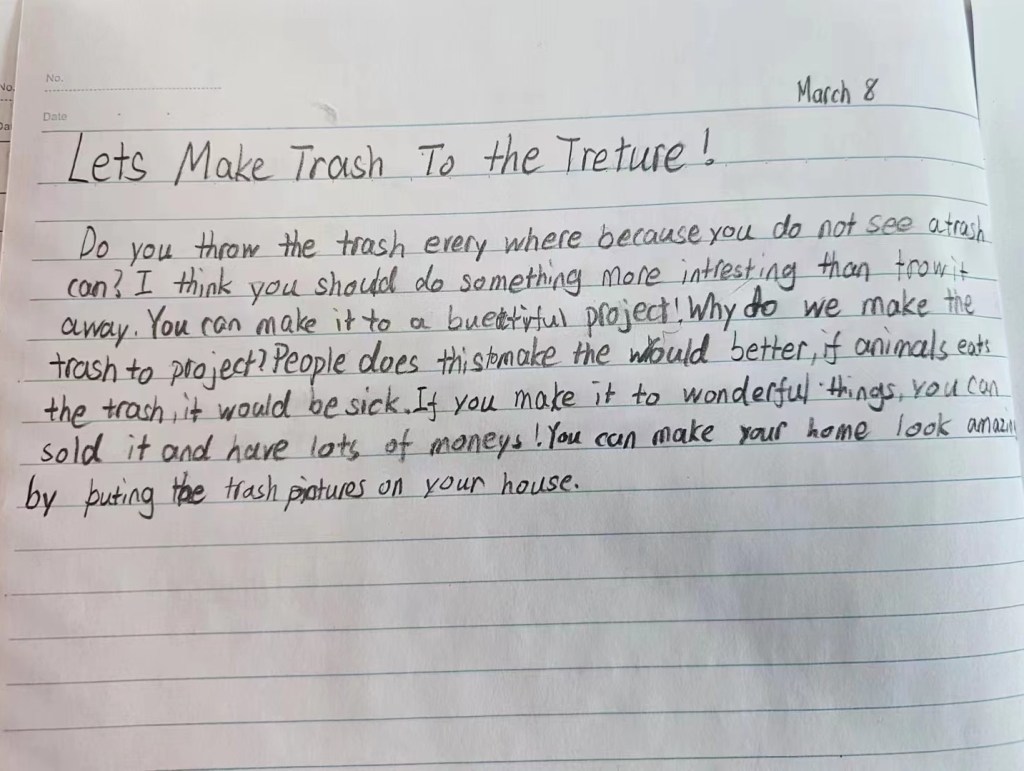 No.
March 8
Date
Lets Make Trash To the Treture!
Do you throw the trash every where because you do not see a trash
can? I think you should do something more intresting than trow it
away. You can make it to a buetiful project! Why do we make the
trash to project? People does this to make the would better, if animals eats
the trash, it would be sick. If you make it to wonderful things, you can
sold it and have lots of moneys! You can make your home look amazin
by puting the trash pictures on your house.